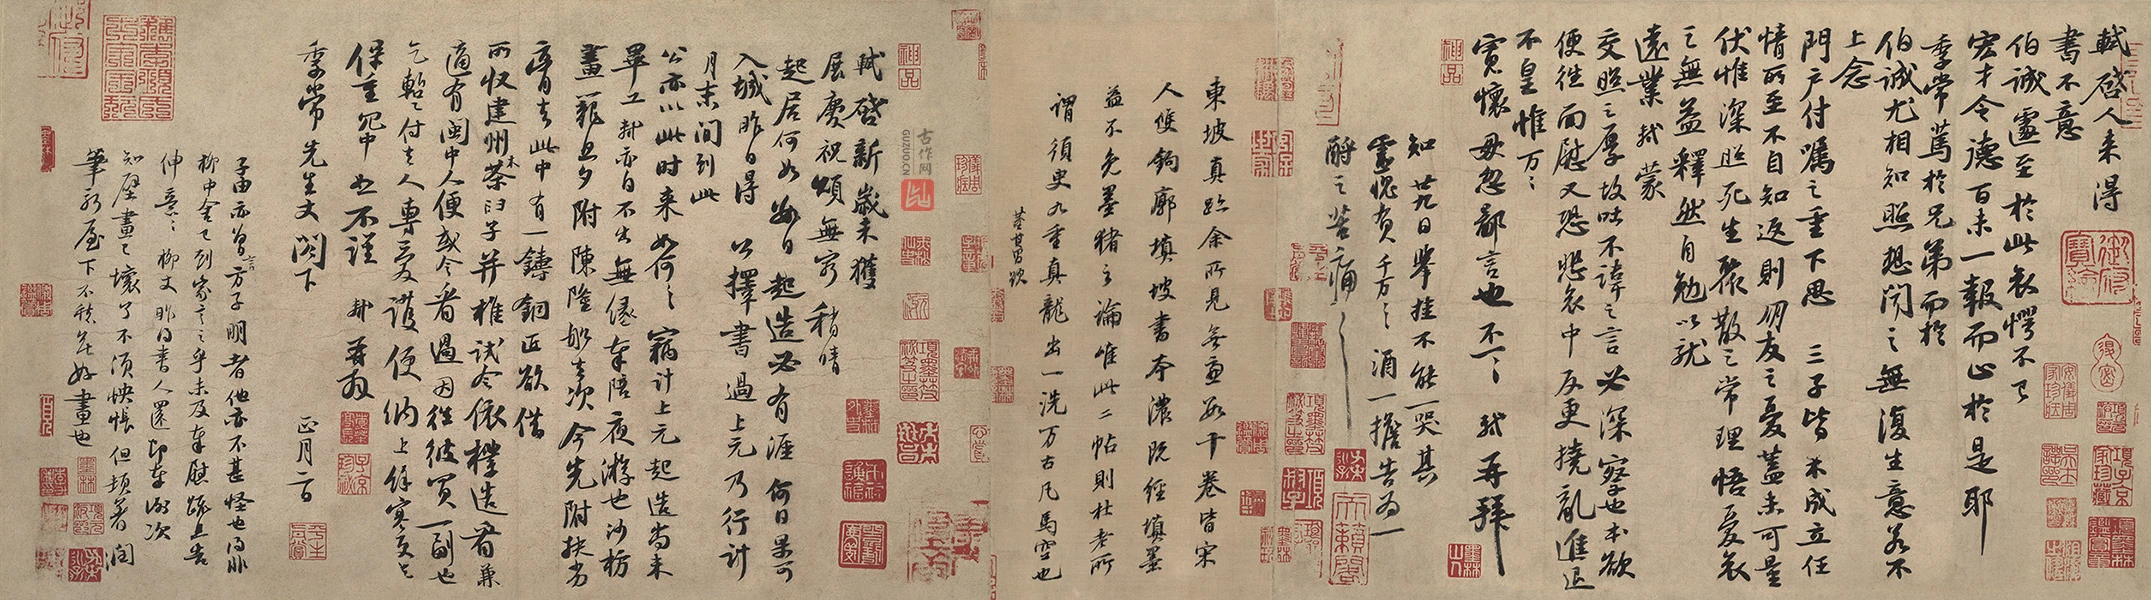 軾啓人來得
書不意
伯誠遽至於此哀愕不已
宏才令德百未一報而止於是耶
季常篤於兄弟而於
伯誠尤相知照想聞之無復生意若不
上念
門戶付囑之重下思三子皆未成立任
情所至不自知返則朋友之憂蓋未可量
伏惟深照死生聚散之常理悟憂哀
之無益釋然自勉以就
遠業軾蒙
交照之厚故吐不諱之言必深察也本欲
便往面慰又恐悲哀中反更撓亂進退
不皇惟万万
寬懷毋忽鄙言也不一一軾再拜
知廿九日舉挂不能一哭其
靈愧負千万千万酒一擔告為一
酹之苦痛苦痛
東坡真跡余所見無慮數十卷皆宋
人雙鉤廓填坡書本濃既經填墨
益不免墨豬之論唯此二帖則杜老所
謂須臾九重真龍出一洗万古凡馬空也
董其昌題
軾啓新歲未獲
展慶祝頌無窮稍晴
起居何如數日起造必有涯何日果可
入城昨日得公擇書過上元乃行計
月末間到此
公亦以此時來如何如何竊計上元起造尚未
畢工軾亦自不出無緣奉陪夜游也沙枋
畫籠旦夕附陳隆船去次今先附扶劣
膏去此中有一鑄銅匠欲借
所收建州木茶臼子并椎試令依樣造看兼
適有閩中人便或令看過因往彼買一副也
乞暫付去人專愛護便納上餘寒更乞
保重冗中恕不謹軾再拜
季常先生丈閣下
正月二日
子由亦曾言方子明者他亦不甚怪也得非
柳中舍已到家言之乎未及奉慰疏且告
伸意伸意柳丈昨得書人還即奉謝次
知壁畫已壞了不須怏悵但頓著潤
筆新屋下不愁無好畫也
古作网
GUZUO.CN
神品
神品